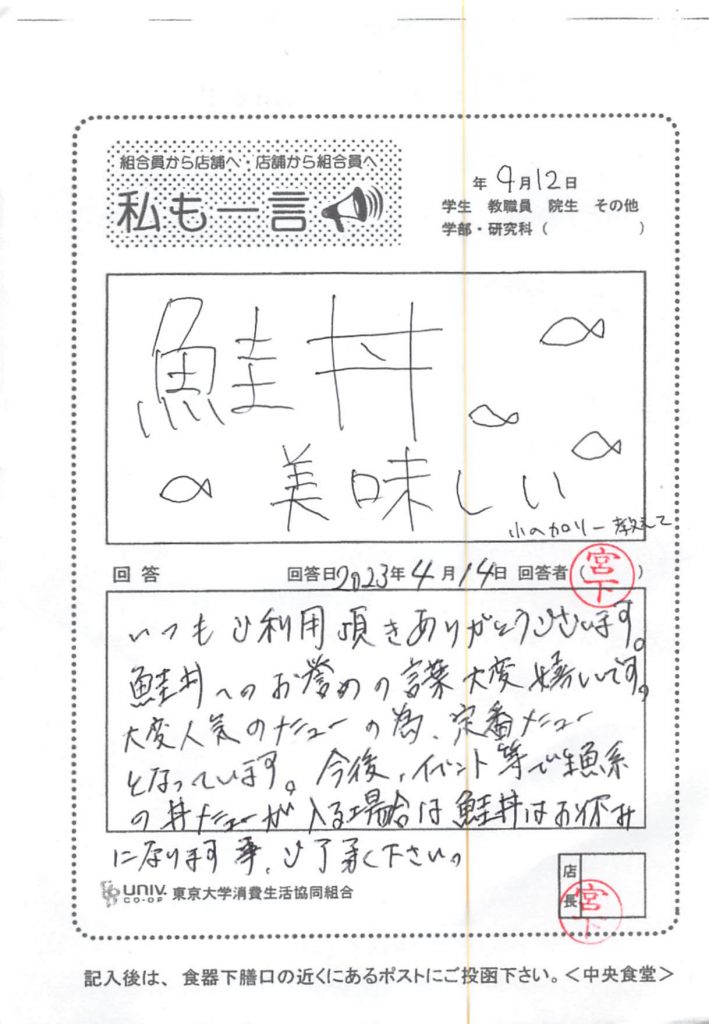 組合員から店舗へ・店舗から組合員へ
私も一言
年 9月12日
学生 教職員 院生 その他
学部・研究科 ( )
鮭丼
美味しい
小のカロリー教えて
回答 回答日2023年4月14日 回答者 (宮下)
いつもご利用頂きありがとうございます。
鮭丼へのお誉めの言葉大変嬉いです。
大変人気のメニューの為、定番メニュー
となっています。今後、イベント等で魚系
の丼メニューが入る場合は鮭丼はお休み
になります事、ご了承く下さい。
店長
宮下
UNIV.
CO-OP
東京大学消費生活協同組合
記入後は、食器下膳口の近くにあるポストにご投函下さい。＜中央食堂＞